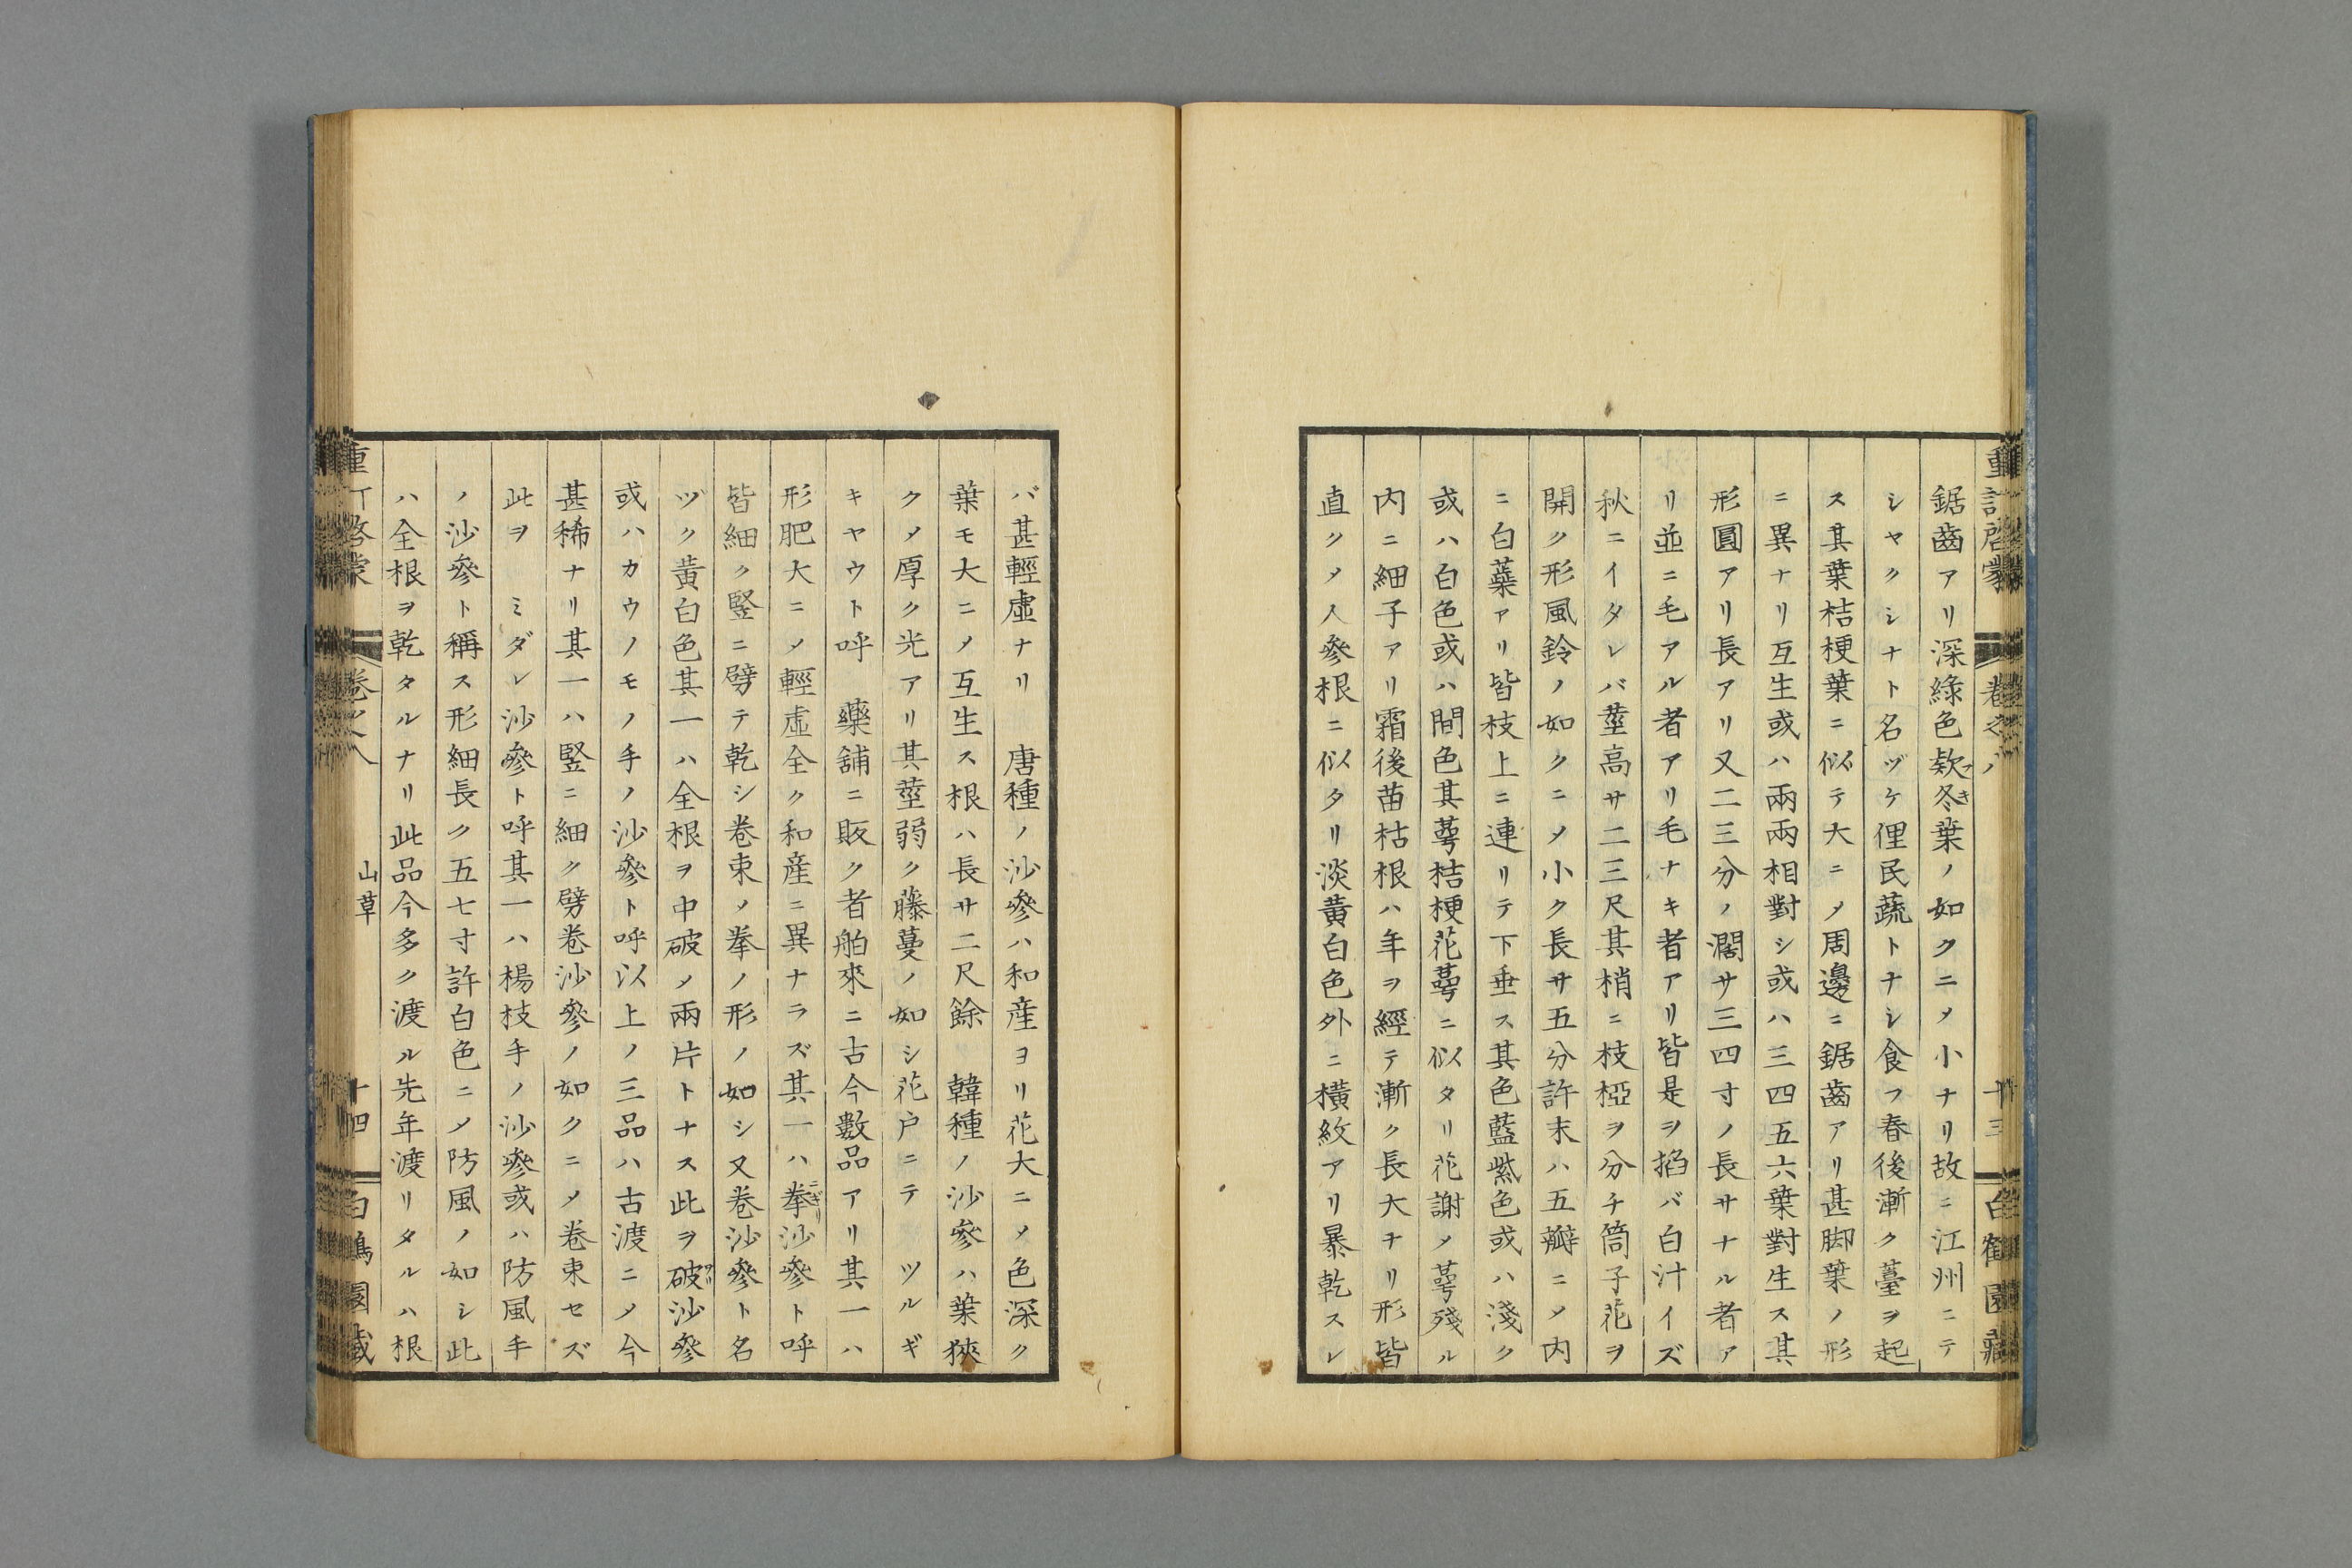 重訂啓蒙 卷之八 十三 白鶴園藏
鋸齒アリ深綠色欵冬葉ノ如クニメ小ナリ故ニ江州ニテ
シヤクシナト名ヅケ俚民蔬トナシ食フ春後漸ク薹ヲ起
ス其葉桔梗葉ニ似テ大ニメ周邊ニ鋸齒アリ甚脚葉ノ形
ニ異ナリ互生或ハ兩兩相對シ或ハ三四五六葉對生ス其
形圓アリ長アリ又二三分ノ濶サ三四寸ノ長サナル者ア
リ並ニ毛アル者アリ毛ナキ者アリ皆是ヲ掐バ白汁イズ
秋ニイタレバ莖高サ二三尺其梢ニ枝椏ヲ分チ筒子花ヲ
開ク形風鈴ノ如クニメ小ク長サ五分許末ハ五瓣ニメ内
ニ白蘂アリ皆枝上ニ連リテ下垂ス其色藍紫色或ハ淺ク
或ハ白色或ハ間色其蕚桔梗花蕚ニ似タリ花謝メ蕚殘ル
内ニ細子アリ霜後苗枯根ハ年ヲ經テ漸ク長大ナリ形皆
直クメ人參根ニ似タリ淡黃白色外ニ橫紋アリ暴乾スレ
バ甚輕虛ナリ 唐種ノ沙參ハ和産ヨリ花大ニメ色深ク
葉モ大ニメ互生ス根ハ長サ二尺餘 韓種ノ沙參ハ葉狹
クメ厚ク光アリ其莖弱ク藤蔓ノ如シ花戸ニテ ツルギ
キヤウト呼 藥舖ニ販ク者舶來ニ古今數品アリ其一ハ
形肥大ニメ輕虛全ク和産ニ異ナラズ其一ハ拳沙參ト呼
皆細ク竪ニ劈テ乾シ卷束メ拳ノ形ノ如シ又卷沙參ト名
ヅク黃白色其一ハ全根ヲ中破メ兩片トナス此ヲ破沙參
或ハカウノモノ手ノ沙參ト呼以上ノ三品ハ古渡ニメ今
甚稀ナリ其一ハ竪ニ細ク劈卷沙參ノ如クニメ卷束セズ
此ヲ ミダレ沙參ト呼其一ハ楊枝手ノ沙參或ハ防風手
ノ沙參ト稱ス形細長ク五七寸許白色ニメ防風ノ如シ此
ハ全根ヲ乾タルナリ此品今多ク渡ル先年渡リタルハ根
重訂啓蒙 卷之八 山草 十四 白鶴園藏